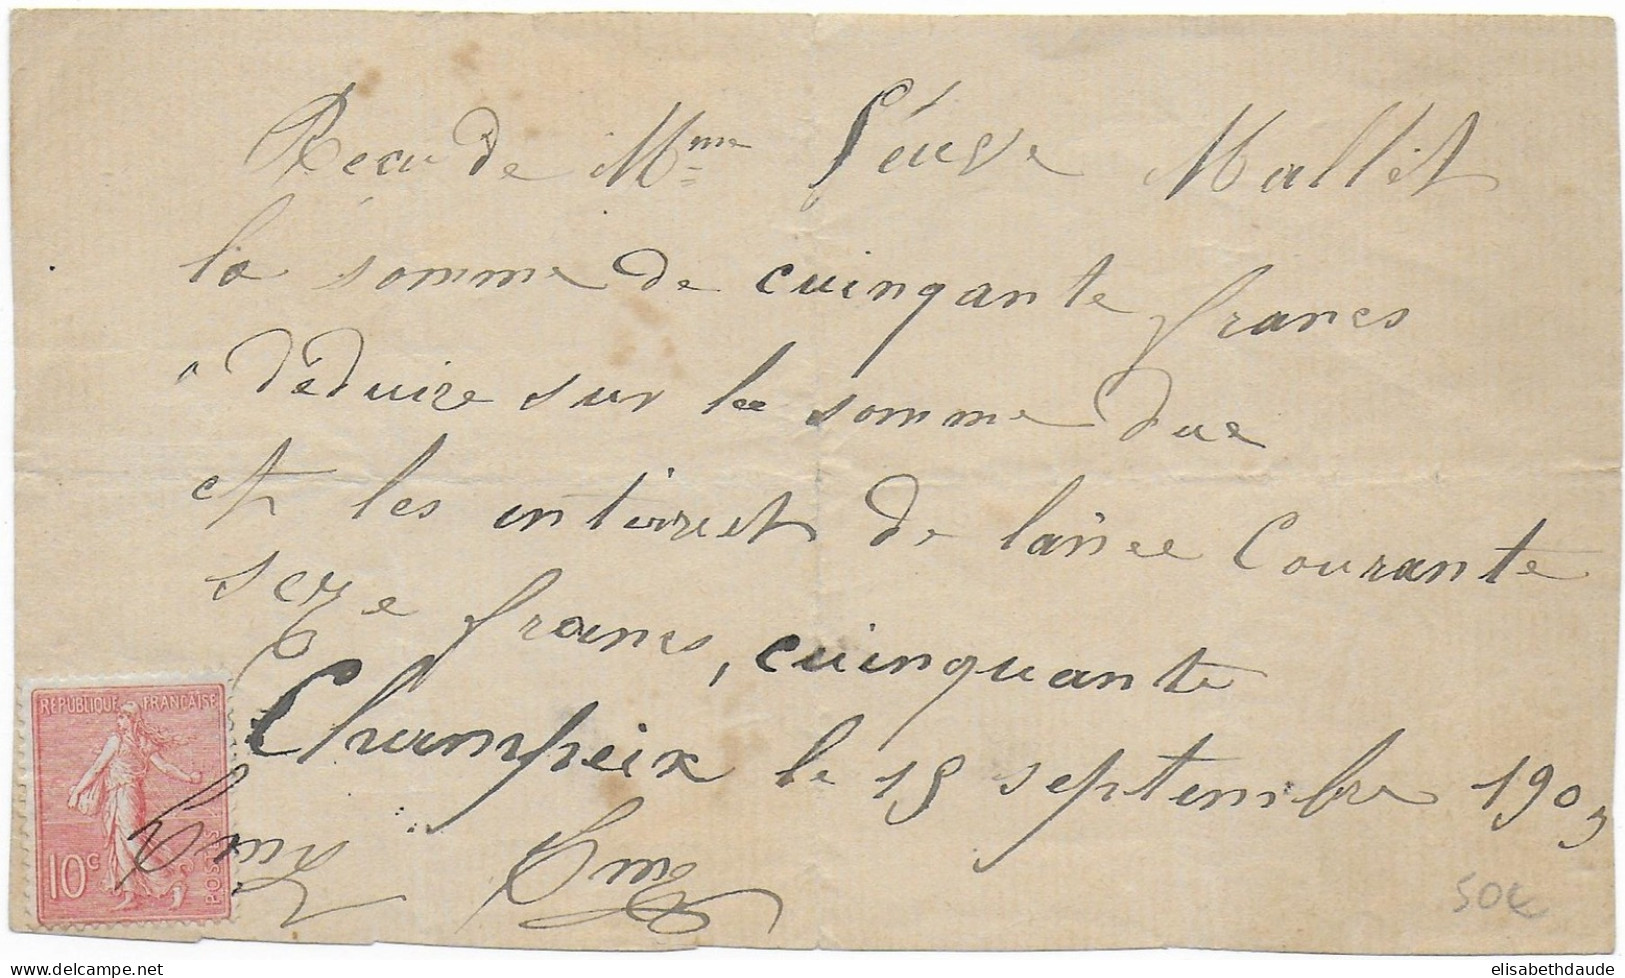 Recu de Mme Veuve Mallet
la somme de cuinqante francs
a déduire sur la somme due
et les interret de lanée Courante
seze francs, cuinquante
Champeix le 18 septembre 1903
REPUBLIQUE FRANÇAISE
10 c
POSTES
50€
elisabethdaude